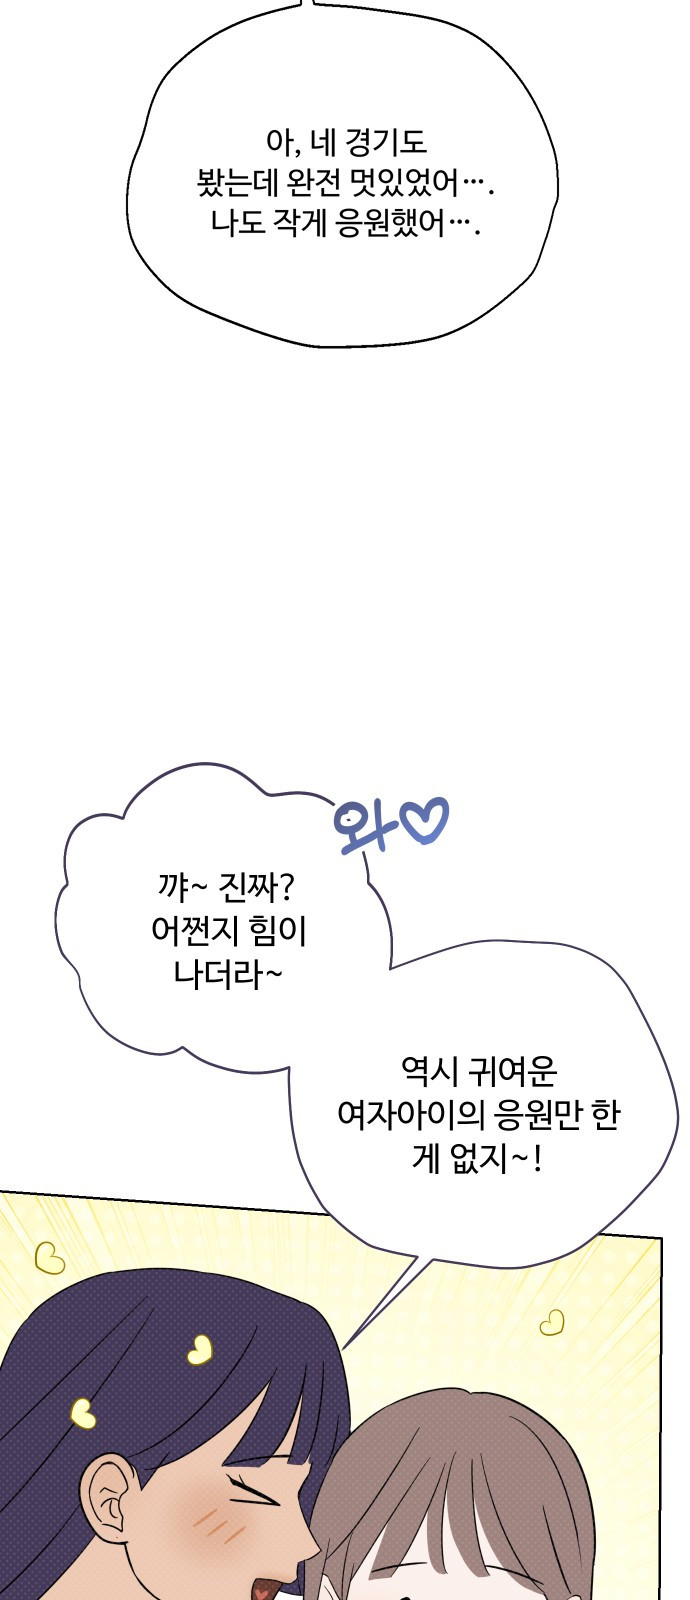 아, 네 경기도
봤는데 완전 멋있었어….
나도 작게 응원했어….
와♡
꺄~ 진짜?
어쩐지 힘이
나더라~
역시 귀여운
여자아이의 응원만 한
게 없지~!